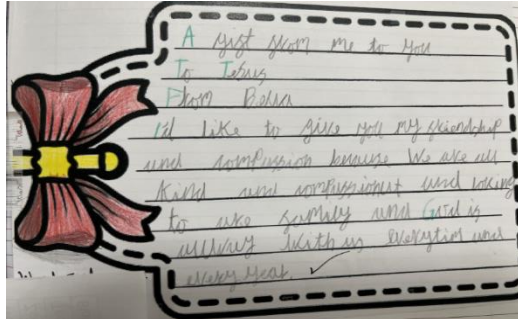 A gift from me to you
To Jesus
From Bella
I'd like to give you my friendship
and compassion because We are all
Kind and compassionat and loving
to are family and God is
allway With us everytim and
every year.